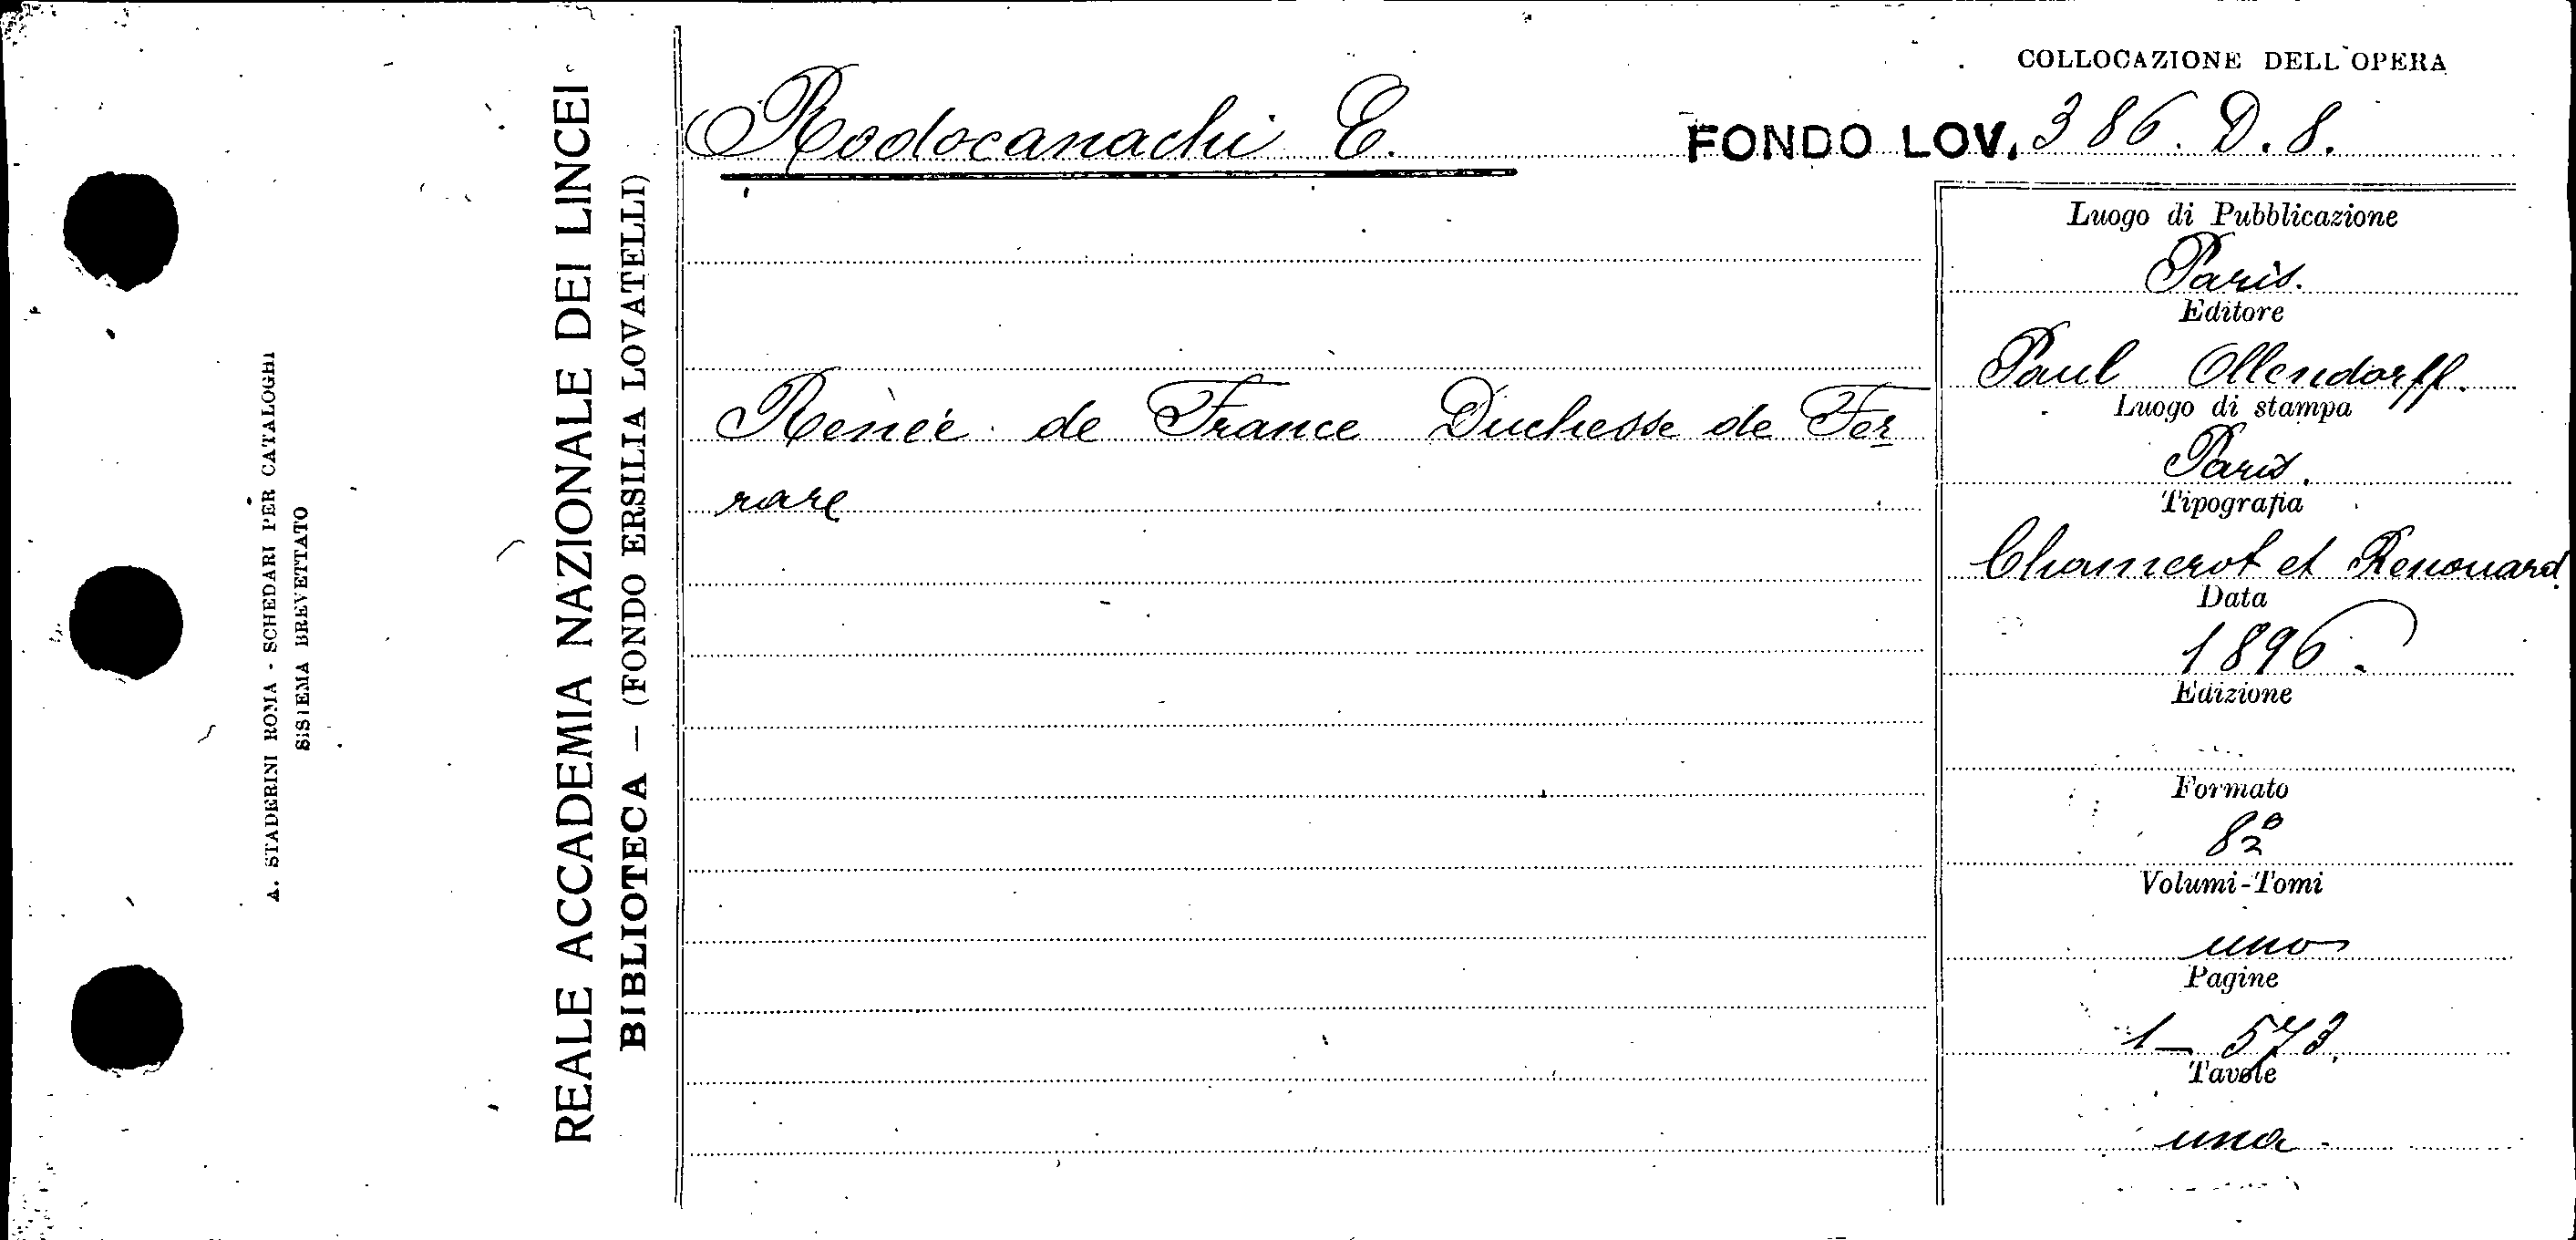 A. STADERINI ROMA - SCHEDARI PER CATALOGHI
SISTEMA BREVETTATO
REALE ACCADEMIA NAZIONALE DEI LINCEI
BIBLIOTECA — (FONDO ERSILIA LOVATELLI)
COLLOCAZIONE DELL'OPERA
Rodocanachi E.
FONDO LOV. 386. D. 8.
Renée de France Duchesse de Fer
rare
Luogo di Pubblicazione
Paris.
Editore
Paul Ollendorff.
Luogo di stampa
Paris.
Tipografia
Chamerot et Renouard
Data
1896.
Edizione
Formato
8º
Volumi-Tomi
uno
Pagine
1 — 573.
Tavole
una